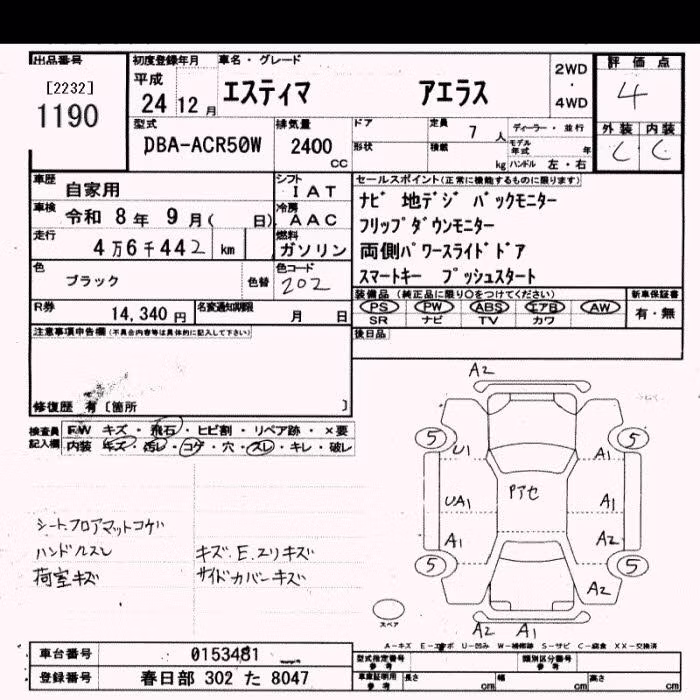 出品番号
[2232]
1190
初度登録年月
平成
24 12 月
車名・グレード
エスティマ アエラス
2WD
・
4WD
評価点
4
外装 内装
C C
型式
DBA-ACR50W
排気量
2400
CC
ドア
形状
定員 7 人
積載 kg
ディーラー・並行
モデル年式 年
ハンドル 左・右
車歴 自家用
車検 令和 8年 9月( 日)
走行 4万6千442 km
色 ブラック 色替
シフト IAT
冷房 AAC
燃料 ガソリン
色コード 202
セールスポイント(正常に機能するものに限ります)
ナビ 地デジ バックモニター
フリップダウンモニター
両側パワースライドドア
スマートキー プッシュスタート
R券 14,340円
名変通知期限 月 日
装備品(純正品に限り○をつけてください)
PS PW ABS エアB AW
SR ナビ TV カワ
新車保証書
有・無
後日品
注意事項申告欄(不具合内容等は具体的に記入して下さい)
修復歴 有〔箇所 〕
検査員記入欄
FW キズ・飛石・ヒビ割・リペア跡・×要
内装 キズ・汚レ・コゲ・穴・スレ・キレ・破レ
シートフロアマットコゲ
ハンドルスレ
荷室キズ
キズ.E.エリキズ
サイドカバーキズ
A2
5 5
U1 A1
UA1 Pアセ A1
A1 A2
5 5
A2
スペア
A2 A1
A-キズ E-エクボ U-凹み W-補修跡 S-サビ C-腐食 XX-交換済
車台番号 0153481
登録番号 春日部 302 た 8047
型式指定番号 参考
類別区分番号 参考
車庫証明用 参考
長さ cm 幅 cm 高さ cm